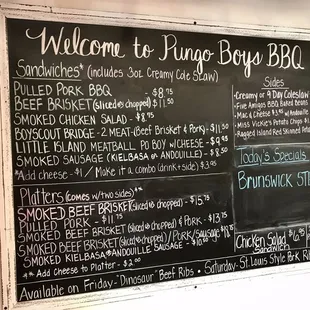 Welcome to Pungo Boys BBQ
Sandwiches* (includes 3oz Creamy Cole Slaw)
Pulled Pork BBQ - $8.75
Beef Brisket (sliced or chopped) $11.50
Smoked Chicken Salad - $8.75
Boyscout Bridge - 2 Meat - (Beef Brisket & Pork) - $11.50
Little Island Meatball Po Boy w/Cheese - $9.95
Smoked Sausage (Kielbasa or Andouille) - $8.50
*Add cheese - $1 / Make it a combo (drink + side) $3.95
Platters (comes w/two sides)**
Smoked Beef Brisket (sliced or chopped) - $15.75
Pulled Pork - $11.75
Smoked Beef Brisket (sliced or chopped) & Pork - $13.75
Smoked Beef Brisket (sliced or chopped) / Pork / Sausage
Smoked Kielbasa or Andouille Sausage
** Add Cheese to Platter - $2.00
Available on Friday - "Dinosaur" Beef Ribs • Saturday - St. Louis Style Pork
Sides
-Creamy or 9 Day Coleslaw
- Five Amigos BBQ Baked Beans
- Mac & Cheese
- Miss Vicky's Potato Chips
- Ragged Island Red Skinned
Today's Specials
Brunswick
Chicken Salad
Sandwich